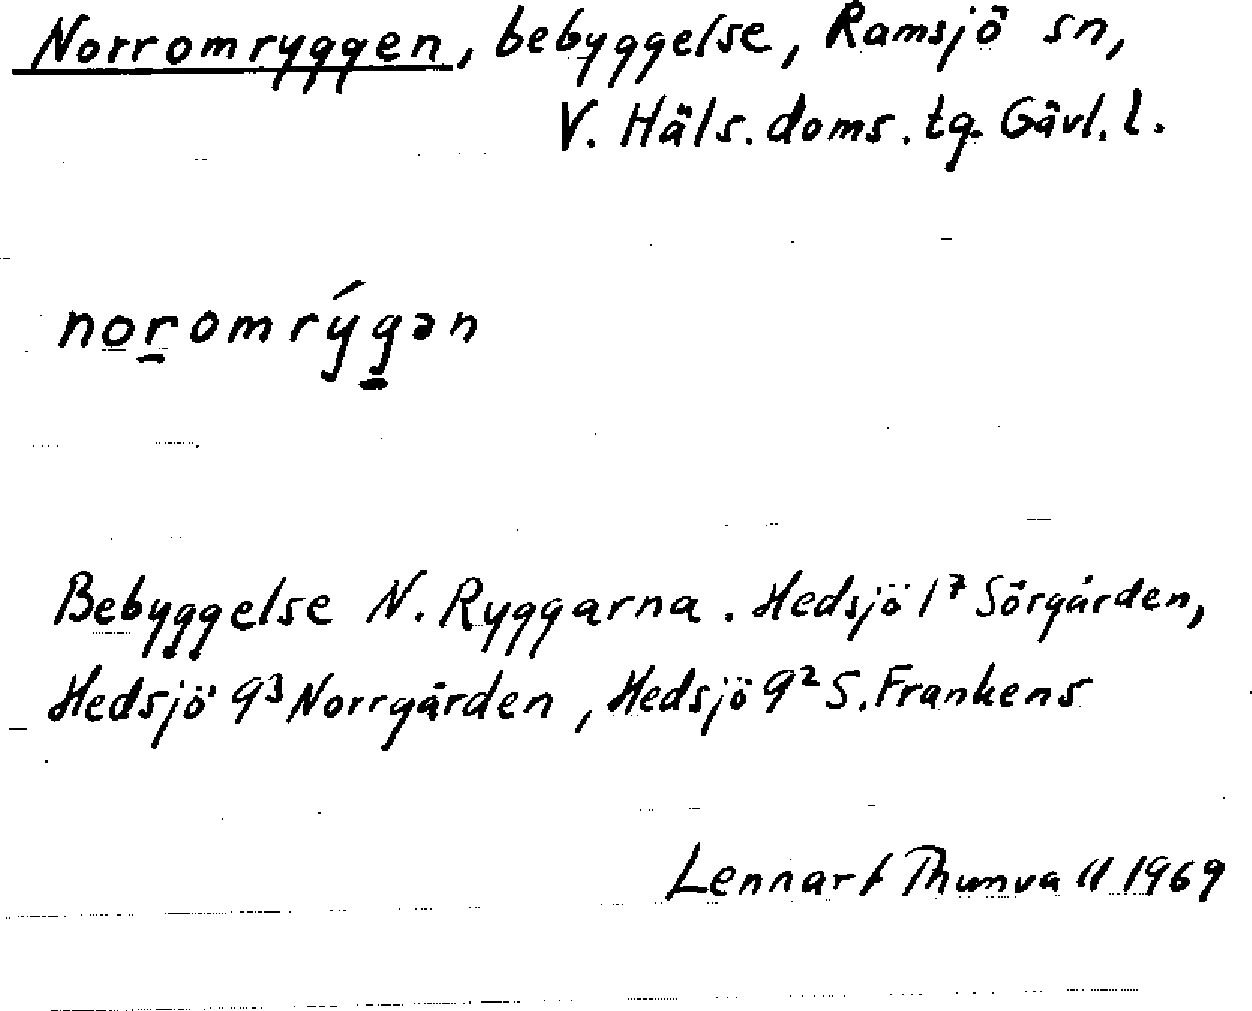 Norromryggen, bebyggelse, Ramsjö sn,
V. Häls. doms. tg. Gävl. l.
noromrýgən
Bebyggelse N. Ryggarna. Hedsjö 1⁷ Sörgården,
Hedsjö 9³ Norrgården, Hedsjö 9² S. Frankens
Lennart Thunvall 1969